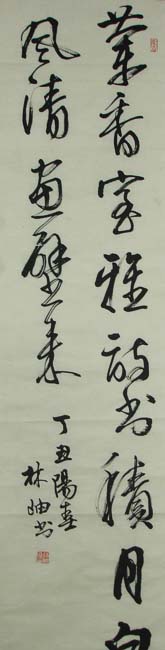 蘭香室雅詩書積月白
風清畫壁來
丁丑陽春
林岫書